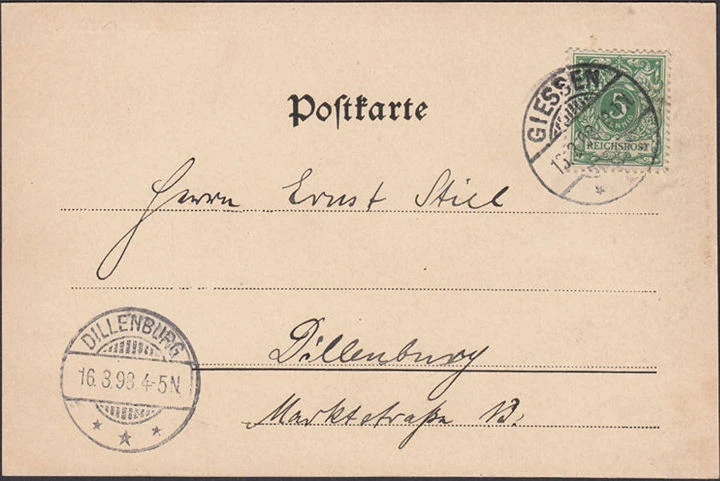 Postkarte
GIESSEN
5
REICHSPOST
Herrn Ernst Stiel
Dillenburg
Marktstraße
DILLENBURG
16.3.98 4-5N.